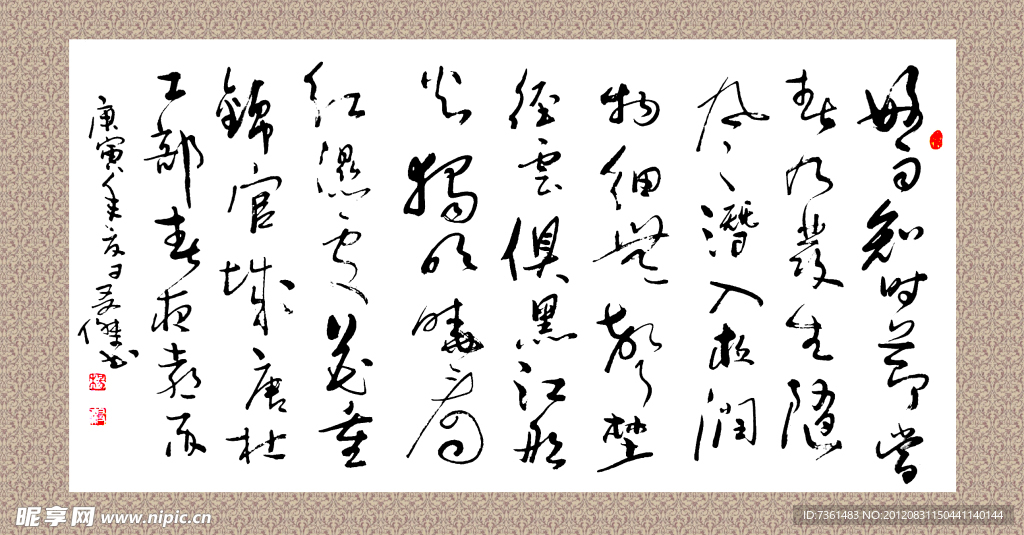 好雨知时節當
春乃發生隨
风潛入夜潤
物細無聲野
徑雲俱黑江船
火獨明曉看
紅濕處花重
錦官城唐杜
工部春夜喜雨
庚寅年夏日傑书
昵享网 www.nipic.cn
ID:7361483 NO:20120831150441140144